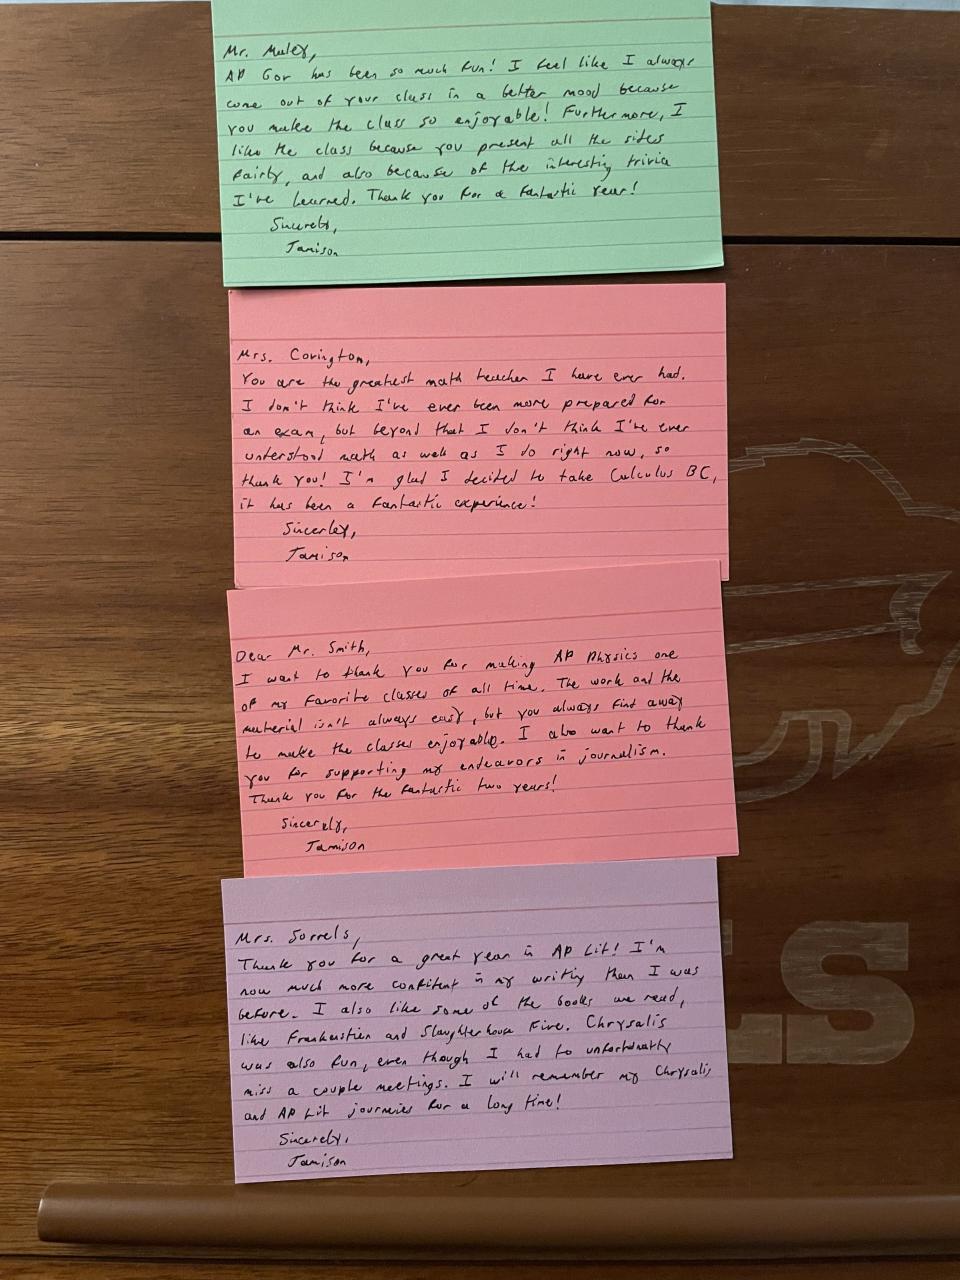 Mr. Muley,
AP Gov has been so much fun! I feel like I always
come out of your class in a better mood because
you make the class so enjoyable! Furthermore, I
like the class because you present all the sides
fairly, and also because of the interesting trivia
I've learned. Thank you for a fantastic year!
Sincerely,
Jamison
Mrs. Covington,
You are the greatest math teacher I have ever had.
I don't think I've ever been more prepared for
an exam, but beyond that I don't think I've ever
understood math as well as I do right now, so
thank you! I'm glad I decided to take Calculus BC,
it has been a fantastic experience!
Sincerley,
Jamison
Dear Mr. Smith,
I want to thank you for making AP Physics one
of my favorite classes of all time. The work and the
material isn't always easy, but you always find away
to make the classes enjoyable. I also want to thank
you for supporting my endeavors in journalism.
Thank you for the fantastic two years!
Sincerely,
Jamison
Mrs. Sorrels,
Thank you for a great year in AP Lit! I'm
now much more confident in my writing then I was
before. I also like some of the books we read,
like Frankenstien and Slaughterhouse Five. Chrysalis
was also fun, even though I had to unfortunatly
miss a couple meetings. I will remember my Chrysalis
and AP Lit journies for a long time!
Sincerely,
Jamison
LS